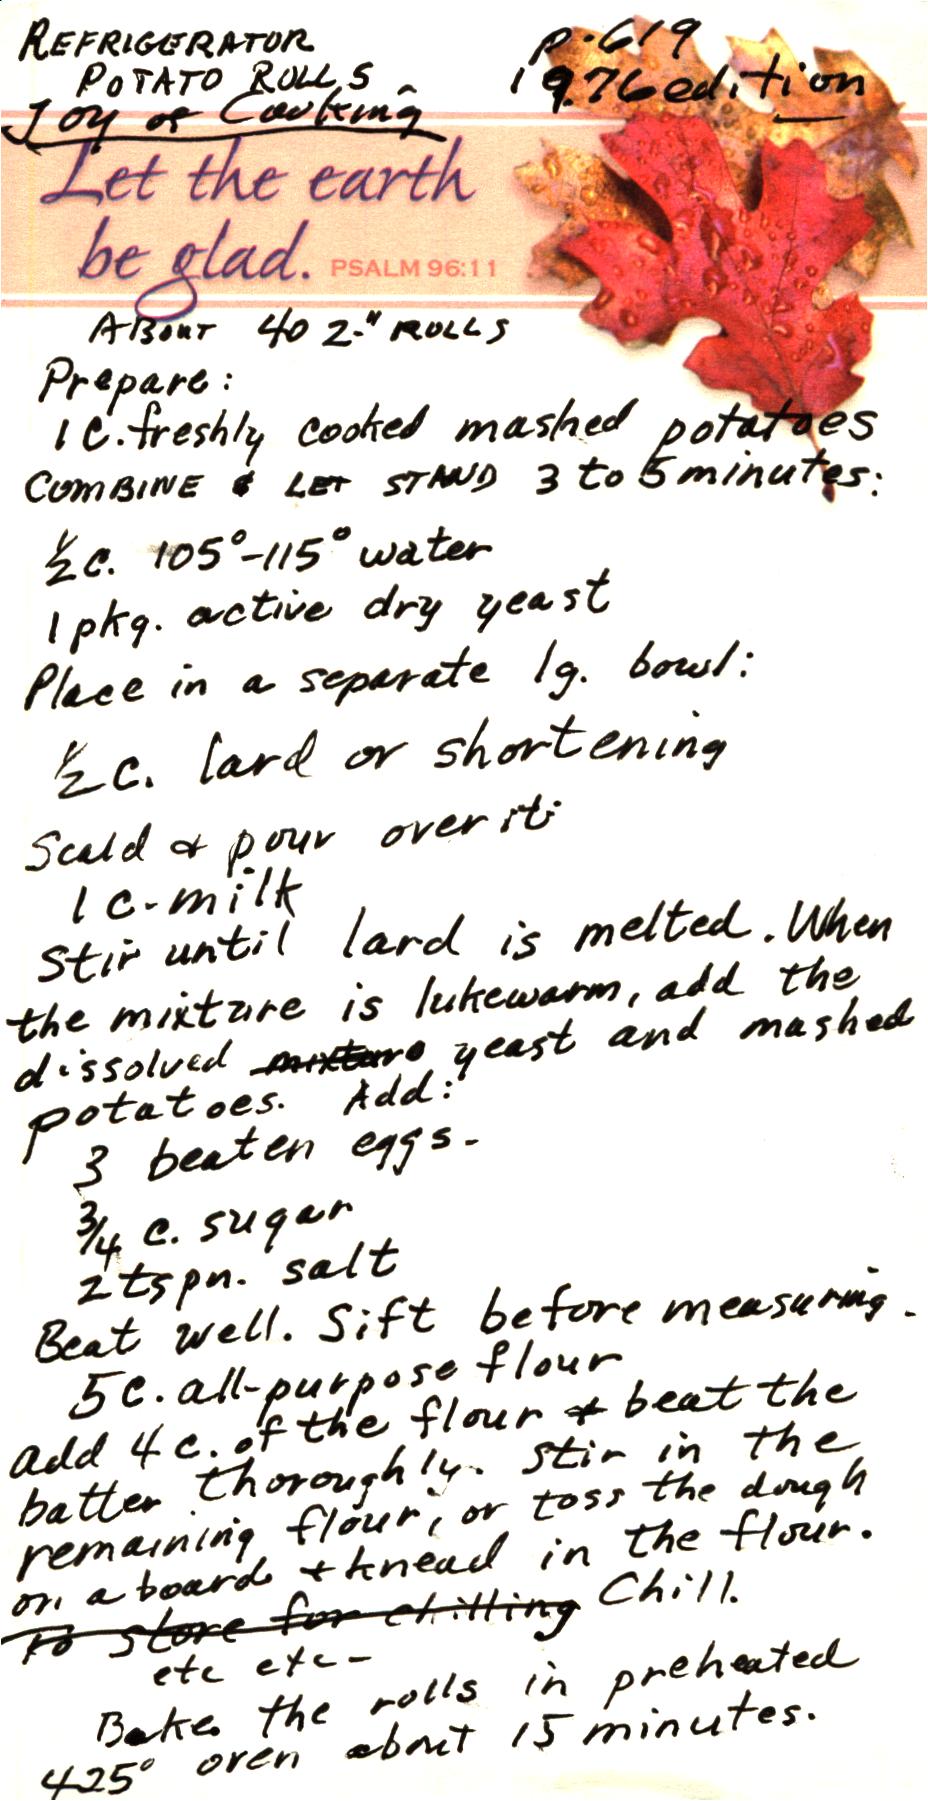 REFRIGERATOR
POTATO ROLLS
Joy of Cooking
p. 619
1976 edition
Let the earth
be glad. PSALM 96:11
ABOUT 40 2" ROLLS
Prepare:
1 C. freshly cooked mashed potatoes
COMBINE & LET STAND 3 to 5 minutes:
½ c. 105°-115° water
1 pkg. active dry yeast
Place in a separate lg. bowl:
½ c. lard or shortening
Scald & pour over it:
1 c. milk
Stir until lard is melted. When
the mixture is lukewarm, add the
dissolved mixture yeast and mashed
potatoes. Add:
3 beaten eggs.
3/4 c. sugar
2 tspn. salt
Beat well. Sift before measuring.
5 c. all-purpose flour
add 4 c. of the flour & beat the
batter thoroughly. Stir in the
remaining flour, or toss the dough
on a board & knead in the flour.
to store for chilling Chill.
etc etc-
Bake the rolls in preheated
425° oven about 15 minutes.